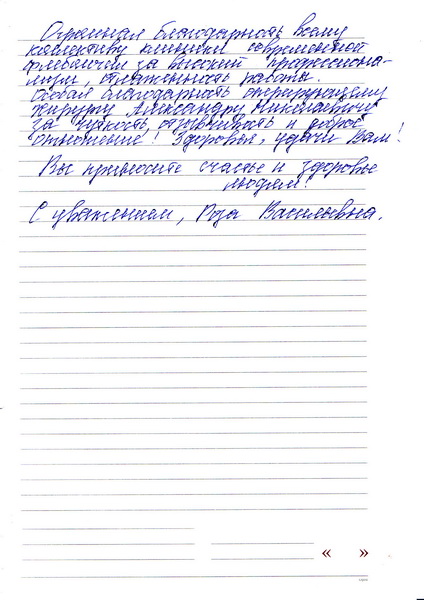 Огромная благодарность всему
коллективу клиники современной
флебологии за высокий профессиона-
лизм, слаженность работы.
Особая благодарность оперирующему
хирургу Александру Николаевичу
за чуткость, отзывчивость и доброе
отношение! Здоровья, удачи Вам!
Вы приносите счастье и здоровье
людям!
С уважением, Роза Васильевна.
« »